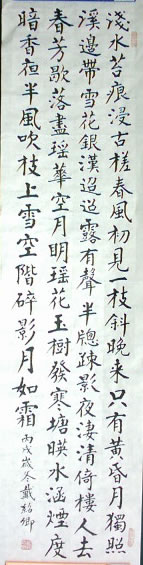 淺水苔痕浸古槎春風初見一枝斜晚來只有黃昏月獨照
溪邊帶雪花銀漢迢迢露有聲半牕疎影夜淒清倚樓人去
春芳歇落盡瑶華空月明瑶花玉樹發寒塘暎水涵煙度
暗香夜半風吹枝上雪空階碎影月如霜
丙戌歲冬戴紹卿